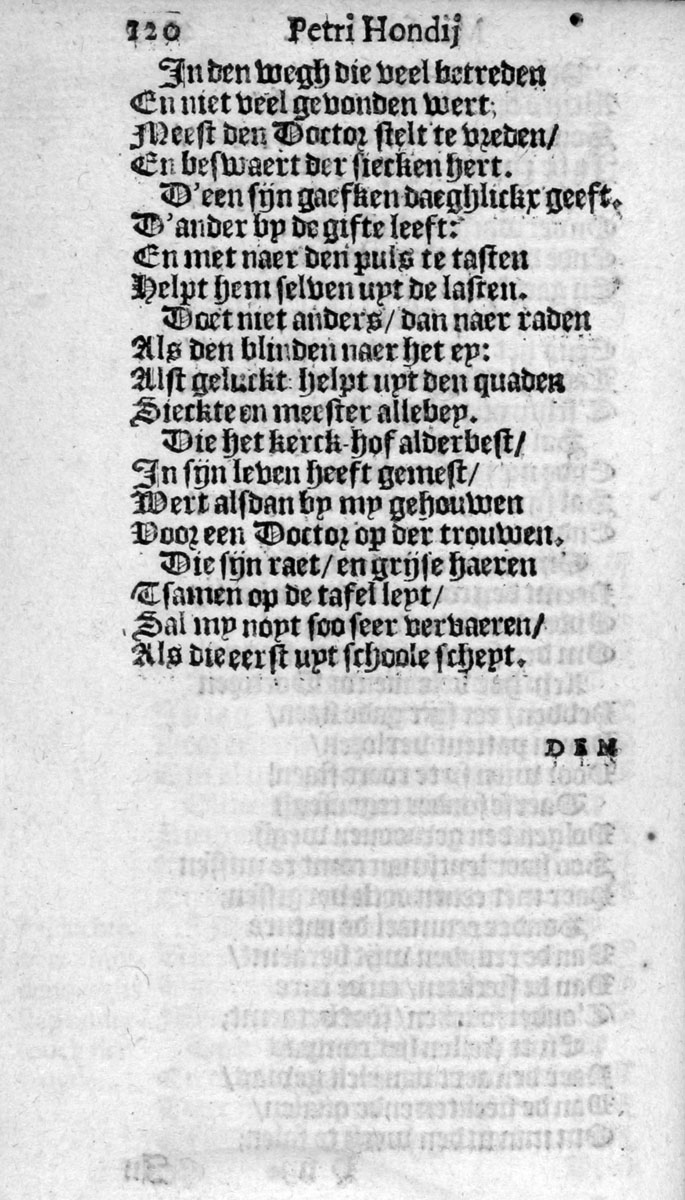 120 Petri Hondij
In den wegh die veel betreden
En niet veel gevonden wert;
Meest den Doctor stelt te vreden/
En beswaert der siecken hert.
D'een sijn gaefken daeghlickx geeft,
D'ander by de gifte leeft:
En met naer den puls te tasten
Helpt hem selven uyt de lasten.
Doet niet anders/ dan naer raden
Als den blinden naer het ey:
Alst geluckt: helpt uyt den quaden
Sieckte en meester allebey.
Die het kerck-hof alderbest/
In sijn leven heeft gemest/
Wert alsdan by my gehouwen
Voor een Doctor op der trouwen.
Die sijn raet/ en grijse haeren
Tsamen op de tafel leyt/
Sal my noyt soo seer vervaeren/
Als die eerst uyt schoole scheyt.
DEN